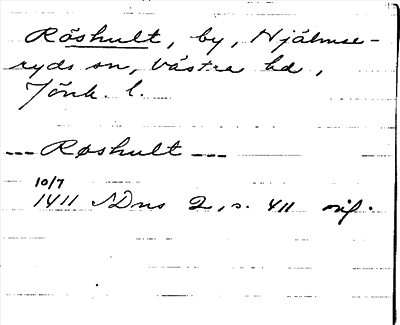 Röshult, by, Hjälmse-
ryds sn, Västra hd,
Jönk. l.
--- Røshult ---
10/7
1411 SDns 2, s. 411 orig.